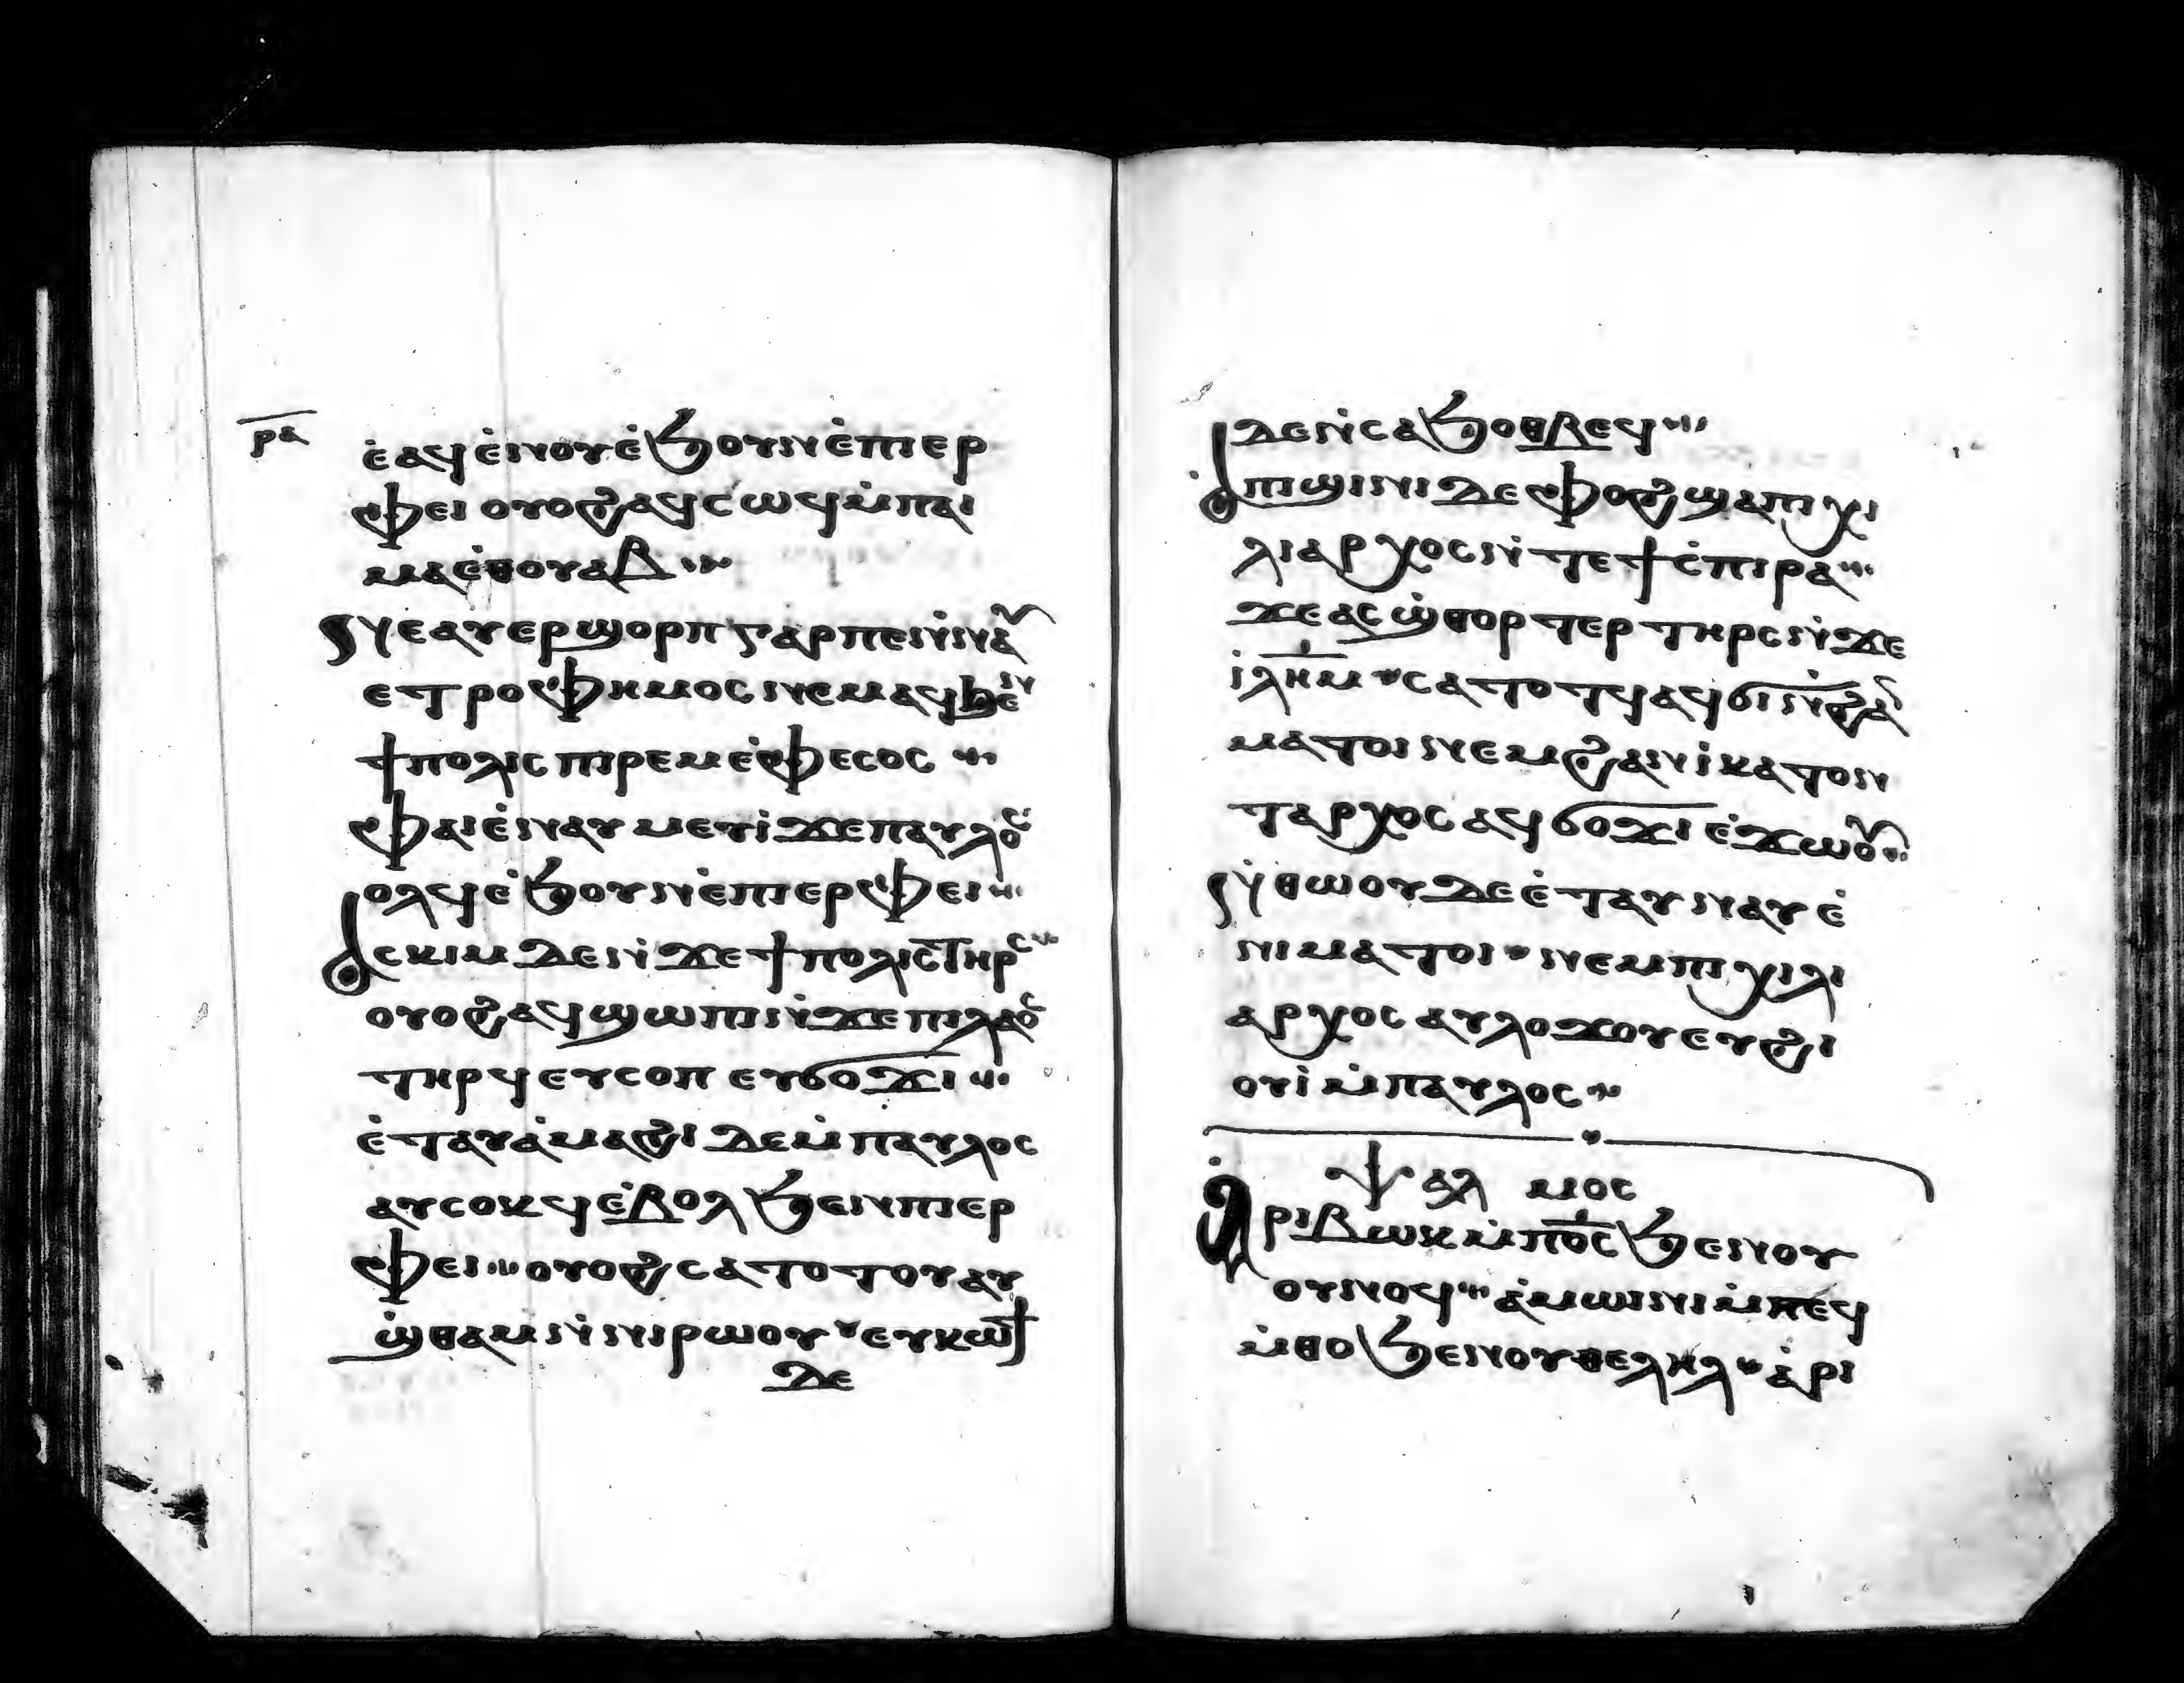 ⲣⲁ
ⲉ̀ⲁϥⲉ̀ⲛⲟⲩⲉ̀ϧⲟⲩⲛⲉ̀ⲡⲓⲉⲣ
ⲫⲉⲓ ⲟⲩⲟϩⲁϥⲥⲱϥⲙ̀ⲡⲁⲓ
ⲙⲁⲉ̀ⲑⲟⲩⲁⲃ
ⲛⲉⲁⲩⲉⲣϣⲟⲣⲡ ⲅⲁⲣⲡⲉⲛ̀ⲛⲁⲩ
ⲉⲧⲣⲟⲫⲓⲙⲟⲥ ⲛⲉⲙⲁϥϧⲉⲛ
ϯⲡⲟⲗⲓⲥ ⲡⲓⲣⲉⲙⲉ̀ⲫⲉⲥⲟⲥ
ⲫⲁⲓⲉ̀ⲛⲁⲩⲙⲉⲩⲓ̀ϫⲉⲡⲁⲩⲗⲟⲥ
ⲟⲗϥⲉ̀ϧⲟⲩⲛⲉ̀ⲡⲓⲉⲣⲫⲉⲓ
ⲁⲥⲕⲓⲙ ⲇⲉⲛ̀ϫⲉϯⲡⲟⲗⲓⲥⲧⲏⲣⲥ
ⲟⲩⲟϩⲁϥϣⲱⲡⲓⲛ̀ϫⲉⲡⲓⲗⲁⲟⲥ
ⲧⲏⲣϥ ⲉⲩⲥⲟⲡ ⲉⲩϭⲟϫⲓ
ⲉ̀ⲧⲁⲩⲁ̀ⲙⲁϩⲓ ⲇⲉⲙ̀ⲡⲁⲩⲗⲟⲥ
ⲁⲩⲥⲟⲕϥⲉ̀ⲃⲟⲗ ϧⲉⲛⲡⲓⲉⲣ
ⲫⲉⲓ ⲟⲩⲟϩⲥⲁⲧⲟⲧⲟⲩⲁⲩ
ϣ̀ⲑⲁⲙⲛ̀ⲛⲓⲣⲱⲟⲩ ⲉⲩⲕⲱϯ
ⲇⲉ
ⲇⲉⲛ̀ⲥⲁϧⲟⲑⲃⲉϥ
ⲁⲡϣⲓⲛⲓ ⲇⲉⲫⲟϩϣⲁⲡⲓⲭⲓ
ⲗⲓⲁⲣⲭⲟⲥⲛ̀ⲧⲉϯⲥ̀ⲡⲓⲣⲁ
ϫⲉⲁⲥϣ̀ⲑⲟⲣⲧⲉⲣⲧⲏⲣⲥⲛ̀ϫⲉ
ⲓ̀ⲗ̅ⲏ̅ⲙ̅ ⲥⲁⲧⲟⲧϥⲁϥϭⲓⲛ̀ϩⲁⲛ
ⲙⲁⲧⲟⲓ ⲛⲉⲙϩⲁⲛⲓ̀ⲕⲁⲧⲟⲛ
ⲧⲁⲣⲭⲟⲥ ⲁϥϭⲟϫⲓ ⲉ̀ϫⲱⲟⲩ
ⲛ̀ⲑⲱⲟⲩ ⲇⲉ ⲉ̀ⲧⲁⲩⲛⲁⲩ ⲉ̀
ⲛⲓⲙⲁⲧⲟⲓ ⲛⲉⲙⲡⲓⲭⲓⲗⲓ
ⲁⲣⲭⲟⲥ ⲁⲩⲗⲟϫⲟⲩⲉⲩϩⲓ
ⲟⲩⲓ̀ⲙ̀ⲡⲁⲩⲗⲟⲥ
ⲯⲁⲗ ⲙⲟⲥ
ⲁⲣⲓⲃⲱⲕⲙ̀ⲡ̅ⲟ̅ⲥ̅ ϧⲉⲛⲟⲩ
ⲟⲩⲛⲟϥ ⲁ̀ⲙⲱⲓⲛⲓⲙ̀ⲡⲉϥ
ⲙ̀ⲑⲟ ϧⲉⲛⲟⲩⲑⲉⲗⲏⲗ ⲁ̀ⲣⲓ